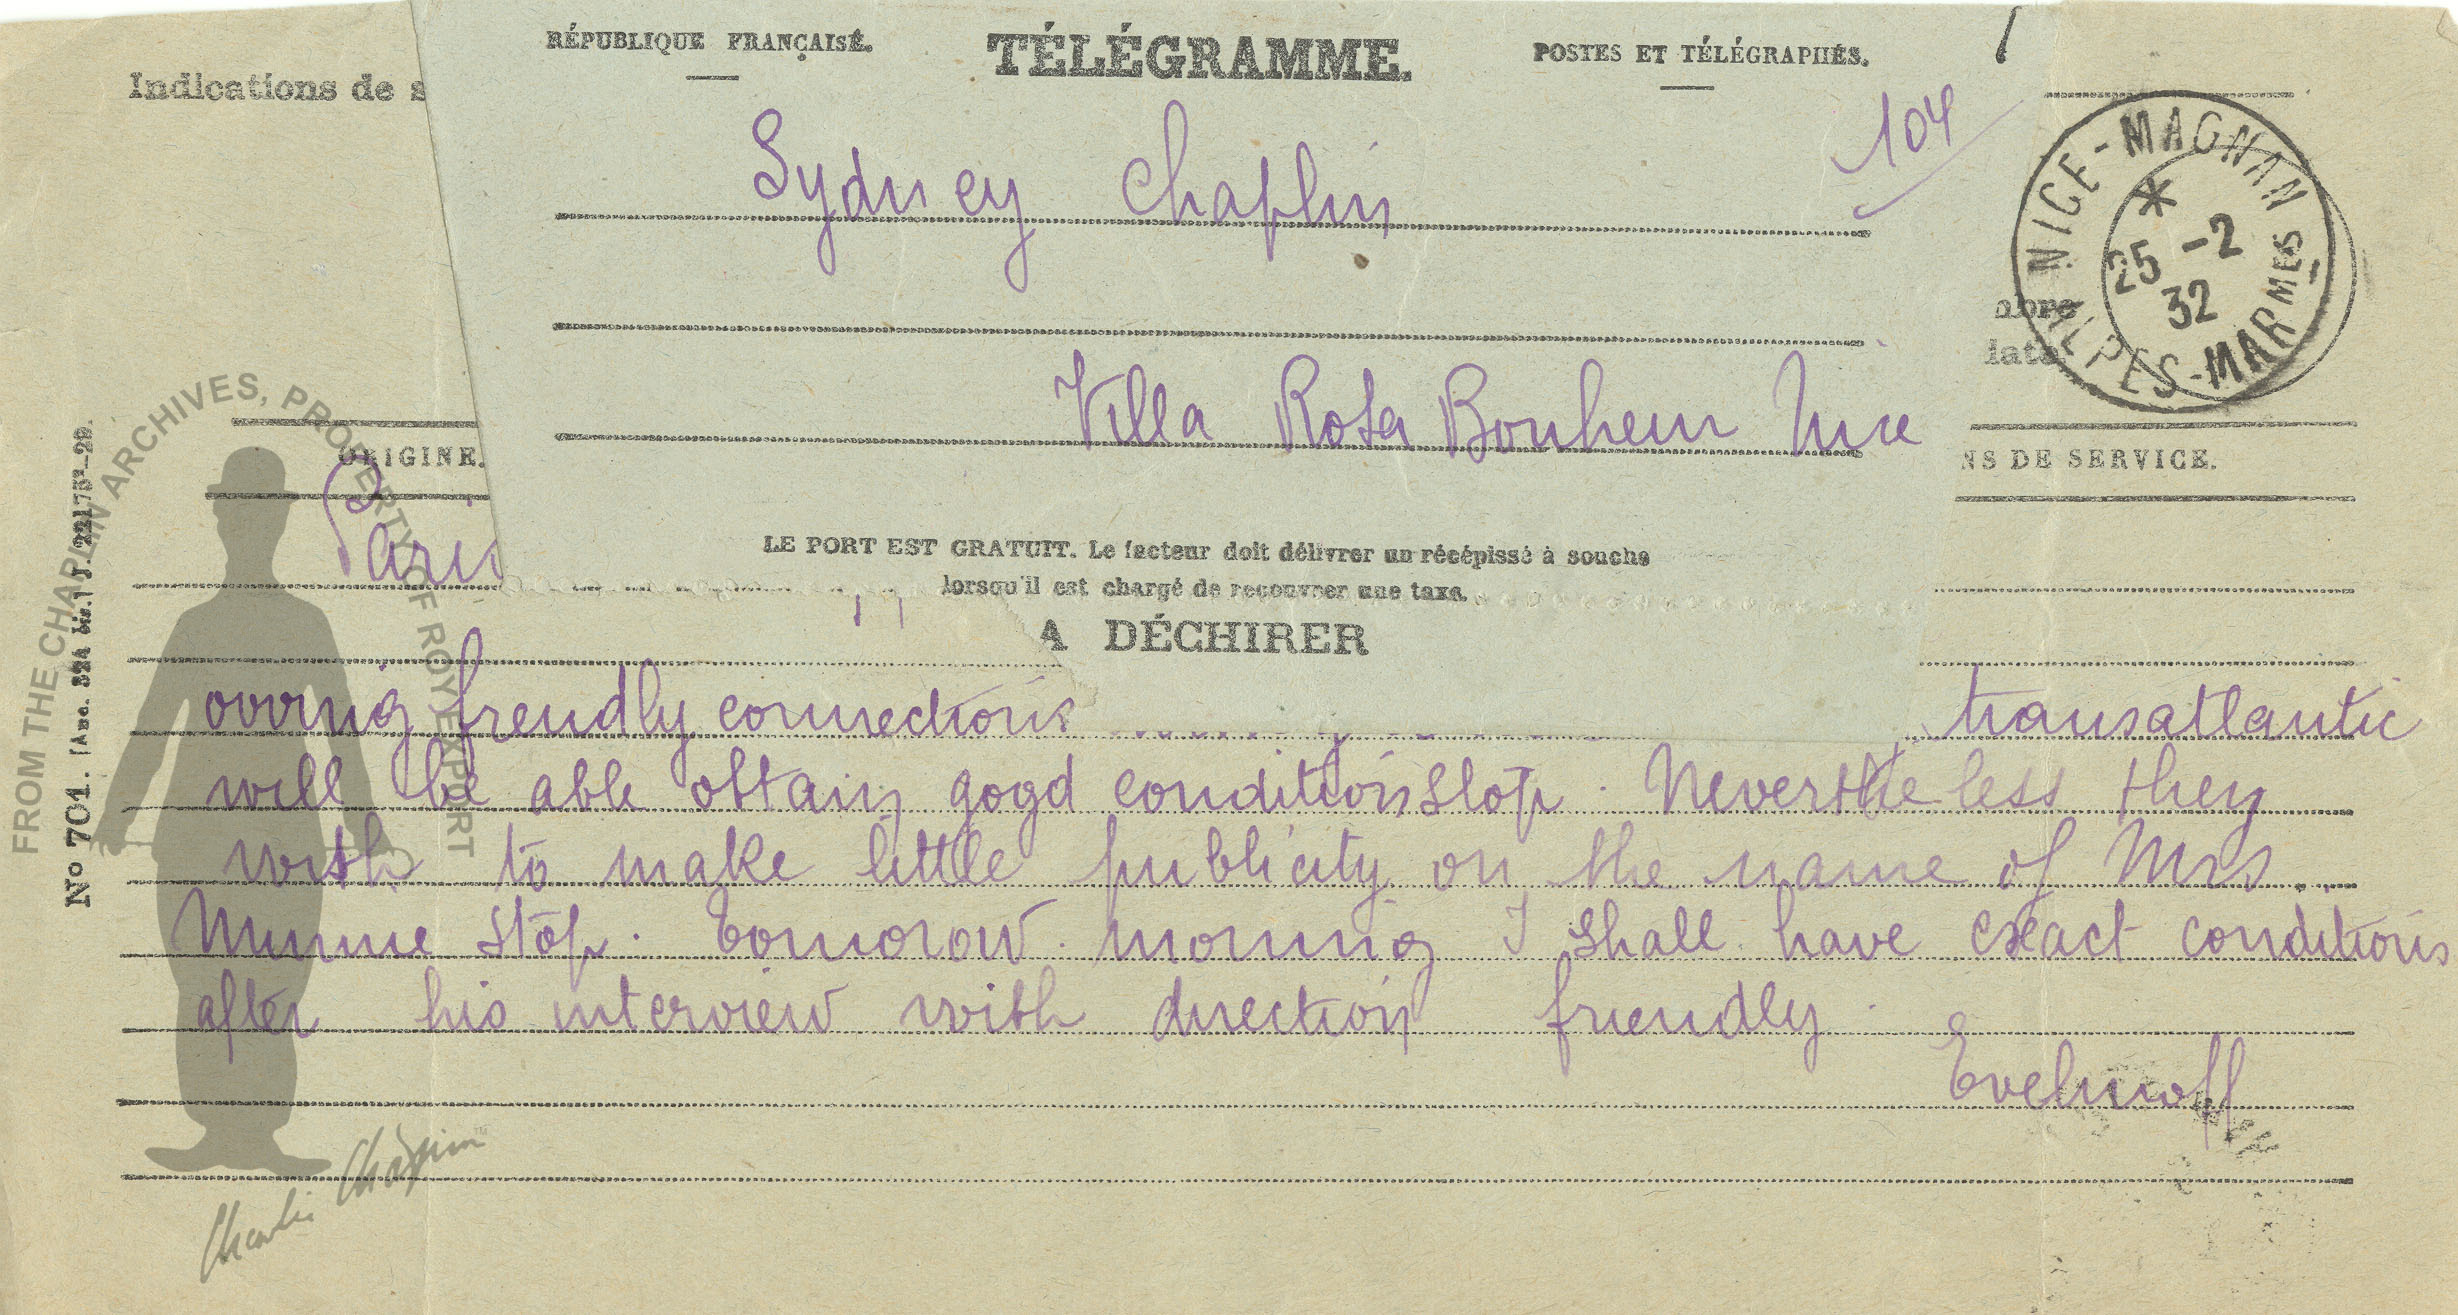 RÉPUBLIQUE FRANÇAISE.
TÉLÉGRAMME.
POSTES ET TÉLÉGRAPHES.
Indications de s
104
Sydney Chaplin
NICE-MAGNAN
*
25 -2
32
ALPES-MARMES
Villa Rosa Bonheur Nice
ORIGINE.
NS DE SERVICE.
Paris
LE PORT EST GRATUIT. Le facteur doit délivrer un récépissé à souche
lorsqu'il est chargé de recouvrer une taxe.
A DÉCHIRER
frendly connections
transatlantic
will be able obtain good conditions stop. Nevertheless they
wish to make little publicity on the name of Mrs.
Minnie stop. Tomorow morning I shall have exact conditions
after his interview with direction friendly.
Evelinoff
No 701.
FROM THE CHAPLIN ARCHIVES, PROPERTY OF ROY EXPORT
Charlie Chaplin